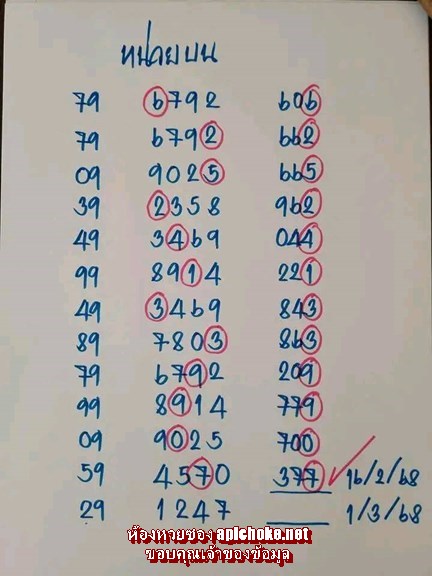 หน่วยบน
79 6792 606
79 6792 662
09 9025 665
39 2358 962
49 3469 044
99 8914 221
49 3469 843
89 7803 863
79 6792 209
99 8914 779
09 9025 700
59 4570 377 16/2/68
29 1247 ____ 1/3/68
ห้องหวยซอง apichoke.net
ขอบคุณเจ้าของข้อมูล